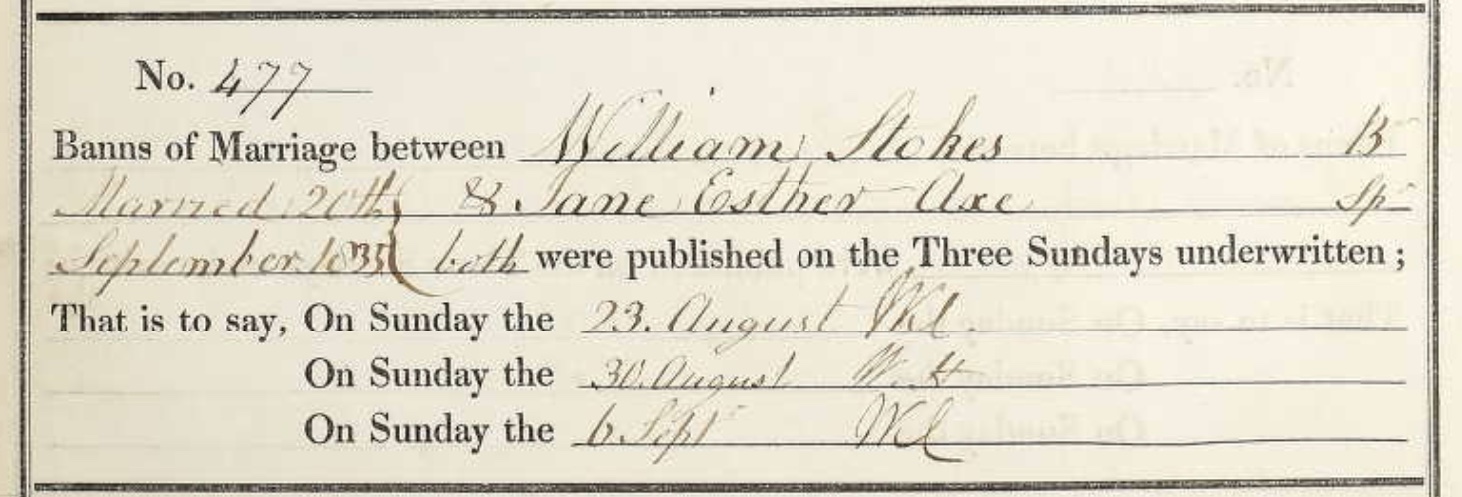 No. 477
Banns of Marriage between William Stokes B
Married 20th & Jane Esther Axe Sp
September 1835 both were published on the Three Sundays underwritten;
That is to say, On Sunday the 23. August
On Sunday the 30. August
On Sunday the 6 Sept